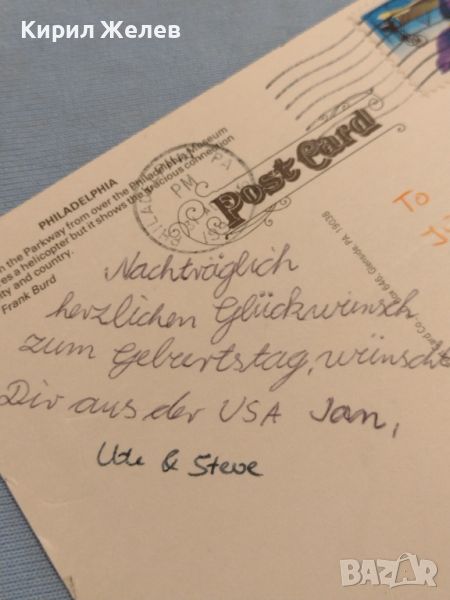 Кирил Желев
PHILADELPHIA
n the Parkway from over the Philadelphia Museum
es a helicopter but it shows the spacious connection
ity and country.
Frank Burd
PHILADELPHIA PA
PM
198
Post Card
Card Co., Box 646, Glenside, PA 19038
TO
Nachträglich
herzlichen Glückwunsch
zum Geburtstag, wünscht
Dir aus der USA Jan,
Ute & Steve
BAZAR